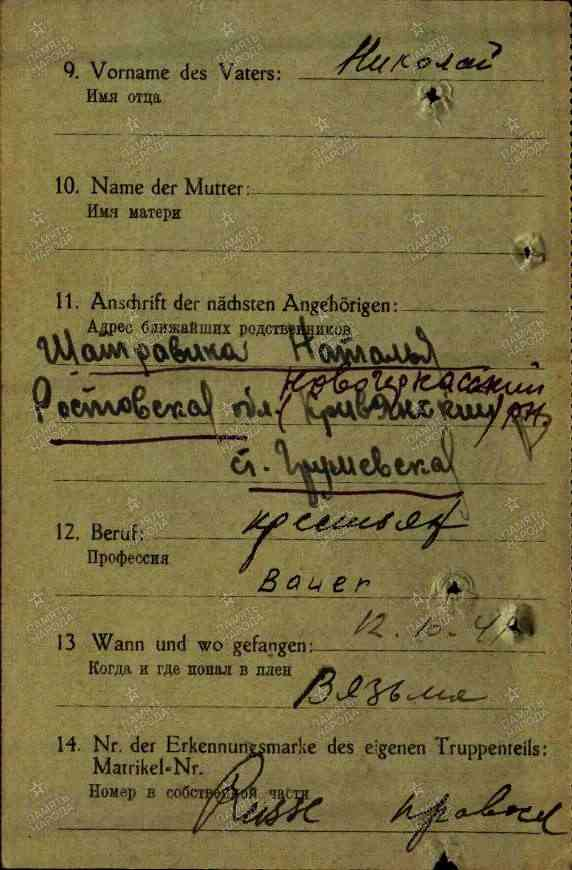 9. Vorname des Vaters: Николай
Имя отца
10. Name der Mutter:
Имя матери
11. Anschrift der nächsten Angehörigen:
Адрес ближайших родственников
Шатравика Наталья
Новочеркасский
Ростовская обл. (Кривянский) рн.
ст. Грушевская
12. Beruf:
Профессия
Bauer
13 Wann und wo gefangen: 12.10.41
Когда и где попал в плен
Вязьма
14. Nr. der Erkennungsmarke des eigenen Truppenteils:
Matrikel-Nr.
Номер в собственной части
Russe
ПАМЯТЬ НАРОДА